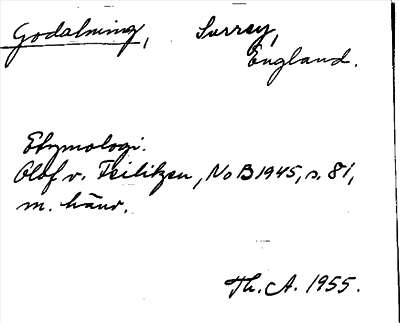 Godalming, Surrey,
England.
Etymologi.
Olof v. Feilitzen, NoB 1945, s. 81,
m. hänv.
Th. A. 1955.